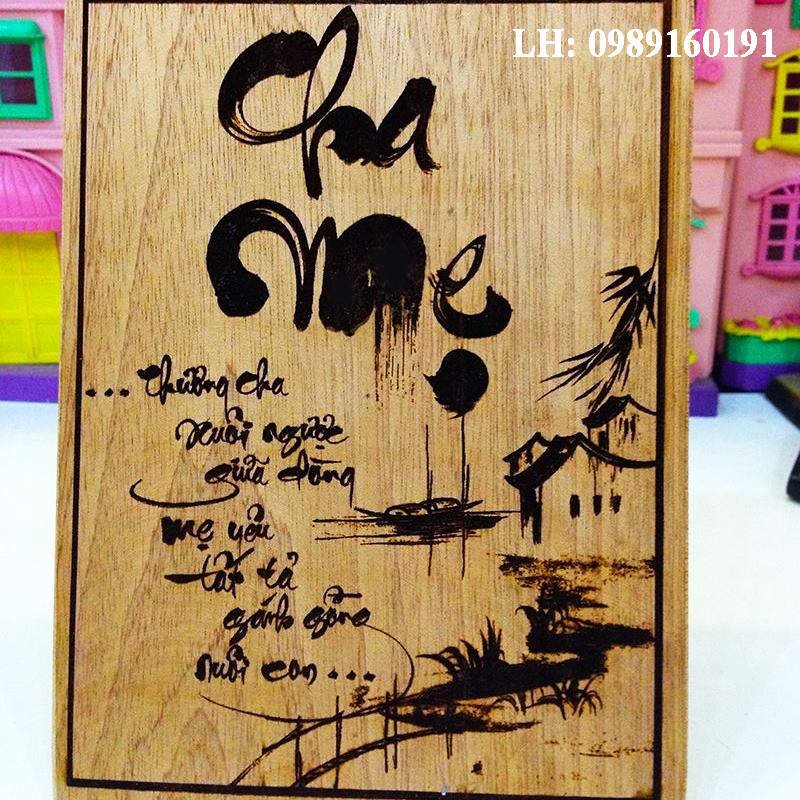 LH: 0989160191
Cha
Mẹ
... Thương cha
xuôi ngược
giữa dòng
mẹ yêu
tất tả
gánh gồng
nuôi con ...